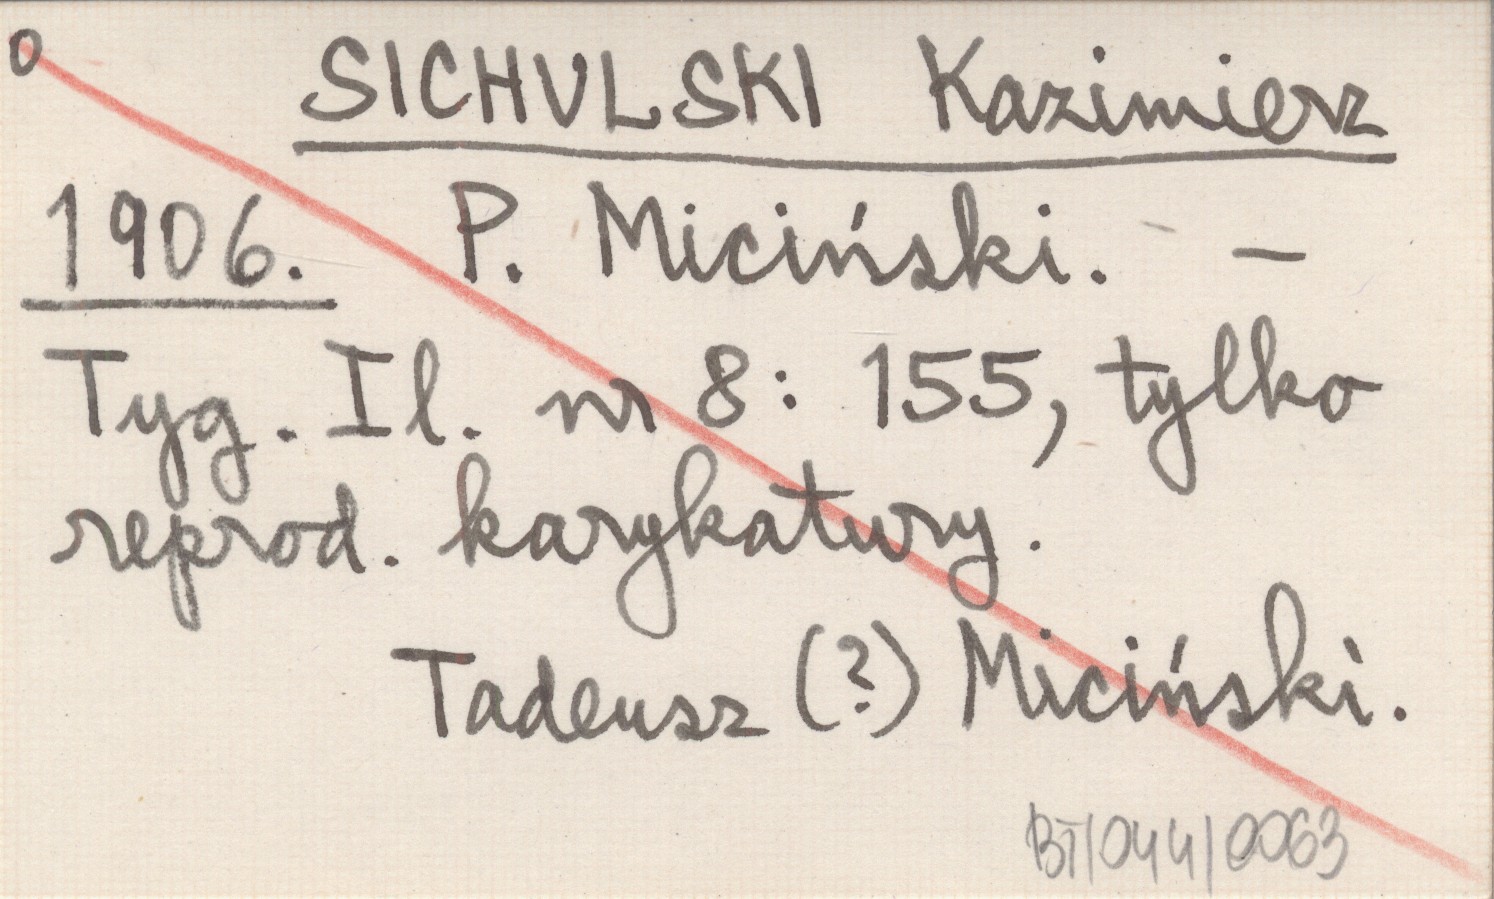 o
SICHULSKI Kazimierz
1906. P. Miciński. –
Tyg. Il. nr 8: 155, tylko
reprod. karykatury.
Tadeusz (?) Miciński.
BT/044/0063